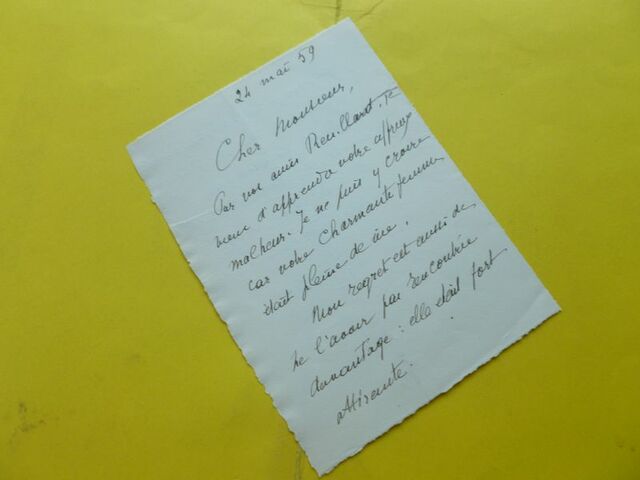 24 mai 59
Cher Monsieur,
Par vos amis Je
viens d'apprendre votre affreux
malheur. Je ne puis y croire
car votre charmante femme
était pleine de vie.
Mon regret est aussi de
ne l'avoir pas rencontrée
davantage : elle était fort
attirante.